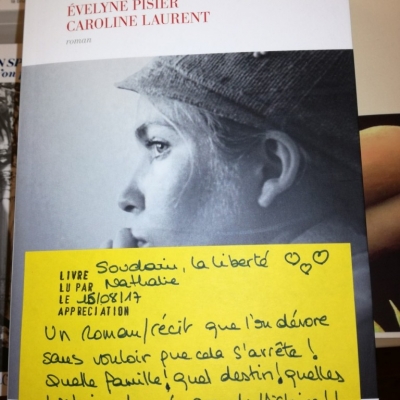 ÉVELYNE PISIER
CAROLINE LAURENT
roman
LIVRE Soudain, la liberté
LU PAR Nathalie
LE 15/08/17
APPRECIATION
Un roman/récit que l'on dévore
sans vouloir que cela s'arrête !
Quelle famille ! quel destin ! quelles